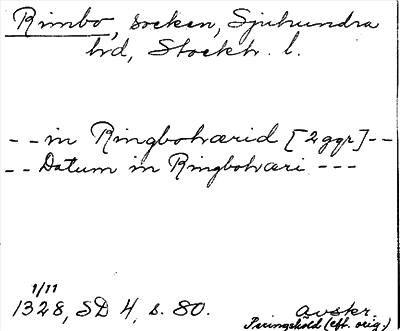 Rimbo, socken, Sjuhundra
hrd, Stockh. l.
-- in Ringbohærid [2 ggr] --
-- Datum in Ringbohæri ---
1/11
1328, SD 4, s. 80.
avskr.
Peringskiöld (eft. orig.)